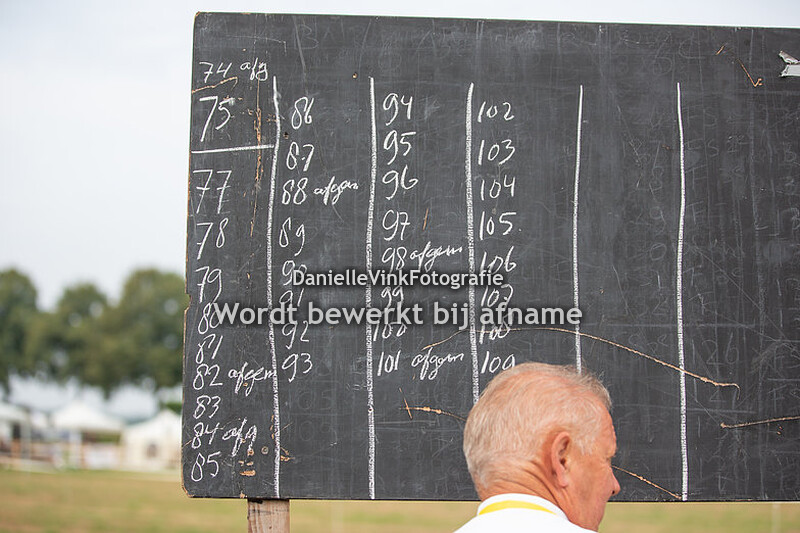 74 afg
75
77
78
79
80
81
82 afgem
83
84 afg
85
86
87
88 afgem
89
90
91
92
93
94
95
96
97
98 afgem
99
100
101 afgem
102
103
104
105
106
107
108
109
DanielleVinkFotografie
Wordt bewerkt bij afname